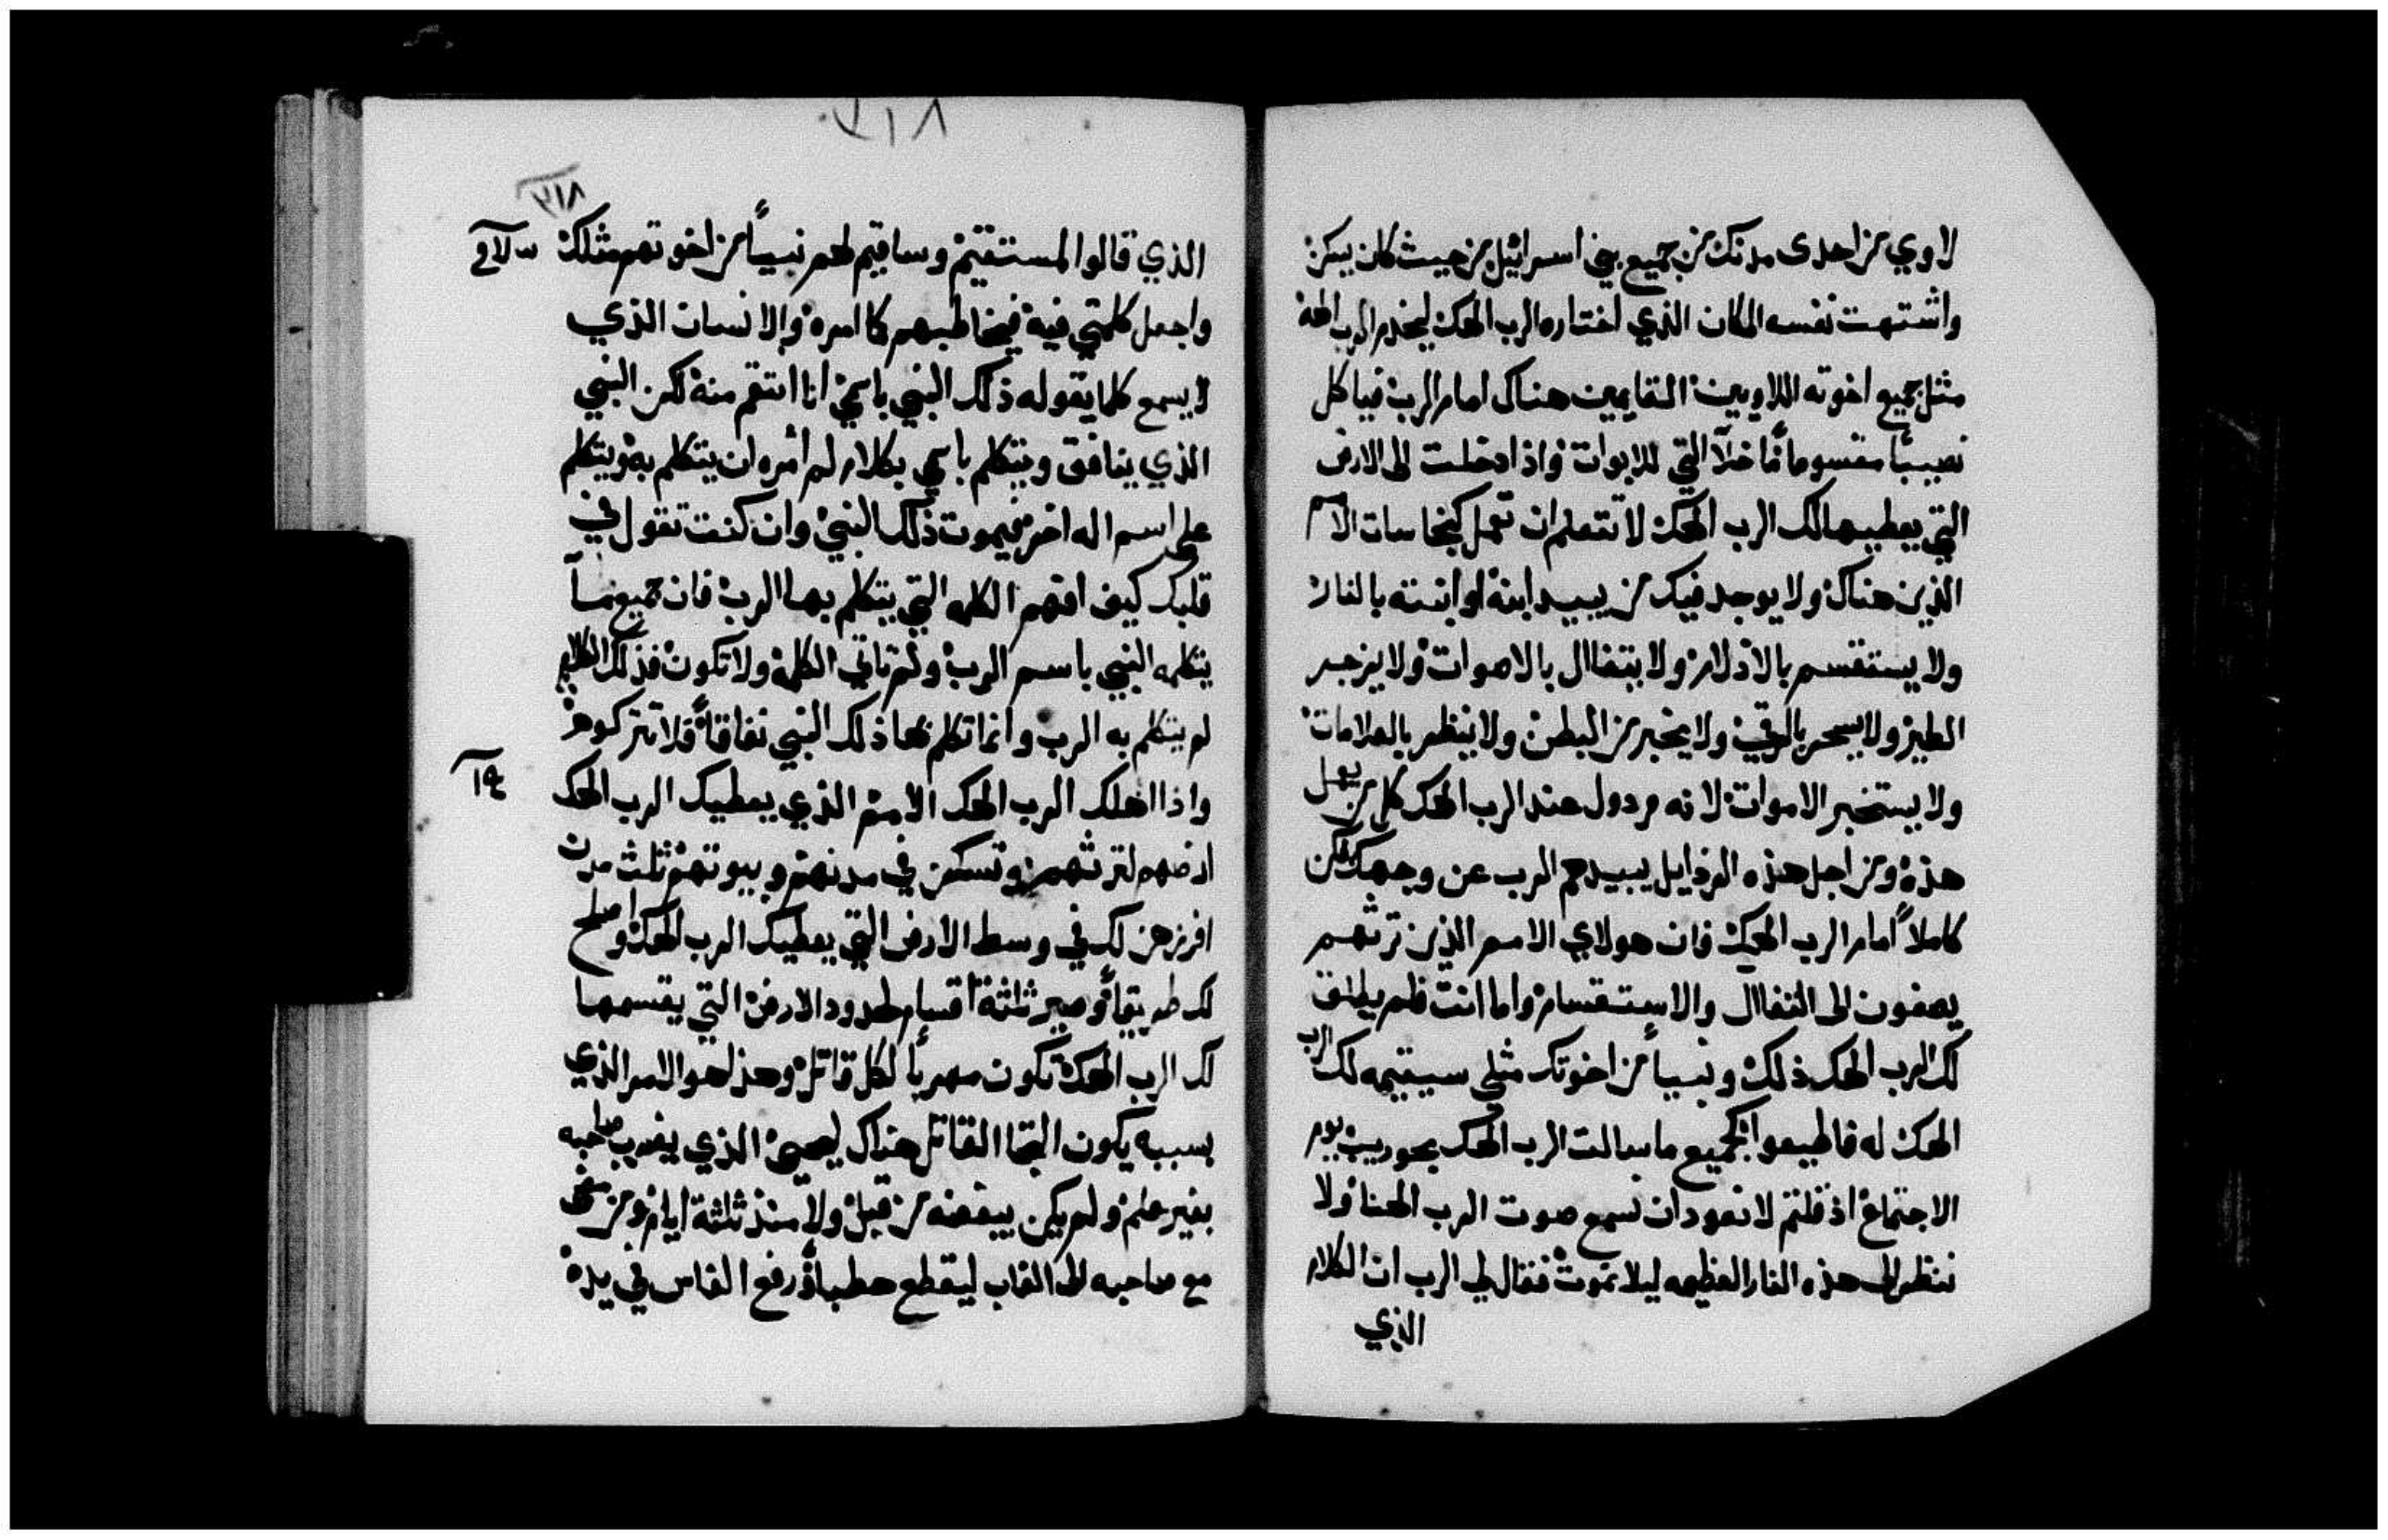 لاوي من احدى مدنك من جميع بني اسرائيل من حيث كان يسكن
واشتهت نفسه المكان الذي اختاره الرب الهك ليخدم الرب الهه
مثل جميع اخوته اللاويين القايمين هناك امام الرب فياكل
نصيبًا مقسومًا خلا التي للابوات واذا دخلت الى الارض
التي يعطيها لك الرب الهك لا تتعلم ان تعمل كنجاسات الامم
الذين هناك ولا يوجد فيك من يبيد ابنه او ابنته بالنار
ولا يستقسم بالازلام ولا يتفاال بالاصوات ولا يزجر
الطير ولا يسحر بالرقي ولا يخبر من البطن ولا ينظر بالعلامات
ولا يستخبر الاموات لانه مردول عند الرب الهك كل من يعمل
هذه ومن اجل هذه الرذايل يبيدهم الرب عن وجهك فكن
كاملاً امام الرب الهك فان هولاي الامم الذين ترثهم
يصغون الى التفاال والاستقسام واما انت فلم يطلق
لك الرب الهك ذلك ونبياً من اخوتك مثلي سيقيمه لك الرب
الهك له فاطيعوا كجميع ما سالت الرب الهك بحوريب يوم
الاجتماع اذ قلتم لا نعود ان نسمع صوت الرب الهنا ولا
ننظر الى هذه النار العظيمه ليلا نموت فقال لي الرب ان الكلام
الذي
٣١٨
٣١٨
الذي قالوا لمستقيم وساقيم لهم نبياً من اخوتهم مثلك
واجعل كلمتي فيه فيخاطبهم كما امره والانسان الذي
لا يسمع كلما يقوله ذلك النبي باسمي انا انتقم منه لكن النبي
الذي ينافق ويتكلم باسمي بكلام لم أمره ان يتكلم به ويتكلم
على اسم اله اخر فيموت ذلك النبي وان كنت تقول في
قلبك كيف افهم الكلمه التي يتكلم بها الرب فان جميع ما
يتكلمه النبي باسم الرب ولم تاتي الكلمة ولا تكون فذلك الكلام
لم يتكلم به الرب وانما تكلم بها ذلك النبي نفاقاً فلا تتركوه
واذا اهلك الرب الهك الامم الذي يعطيك الرب الهك
ارضهم لترثهم وتسكن في مدنهم وبيوتهم ثلث مدن
افرزهن لك في وسط الارض التي يعطيك الرب الهك واصلح
لك طريقاً وصير ثلثة اقسام لحدود الارض التي يقسمها
لك الرب الهك تكون مهرباً لكل قاتل وهذا هو الامر الذي
بسببه يكون التجا القاتل هناك ليحيى الذي يضرب صاحبه
بغير علم ولم يكن يبغضه من قبل ولا منذ ثلثة ايام ومن مضى
مع صاحبه الى الغاب ليقطع حطباً ورفع الفاس في يده